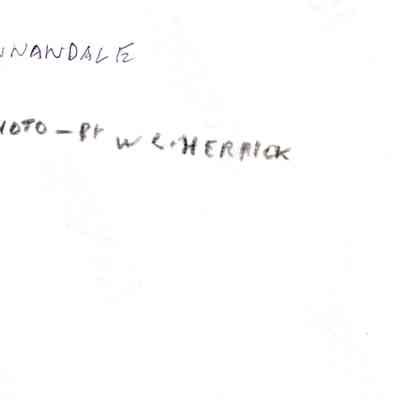 NNANDALE
HOTO - BY W R. HERRICK